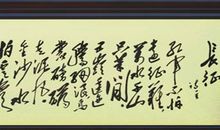 長征
紅軍不怕
遠征難
萬水千山
只等閒
五嶺逶迤
騰細浪烏
蒙磅礴
走泥丸
金沙水
拍雲崖